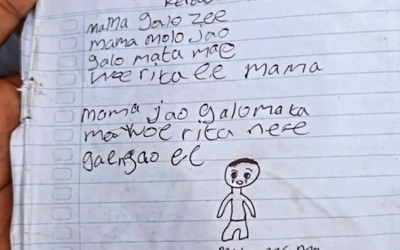 mama galo zee
mama molo jao
galo mata mae
woe rita ee mama
mama jao galomata
ma woe rita neee
gaengao ee